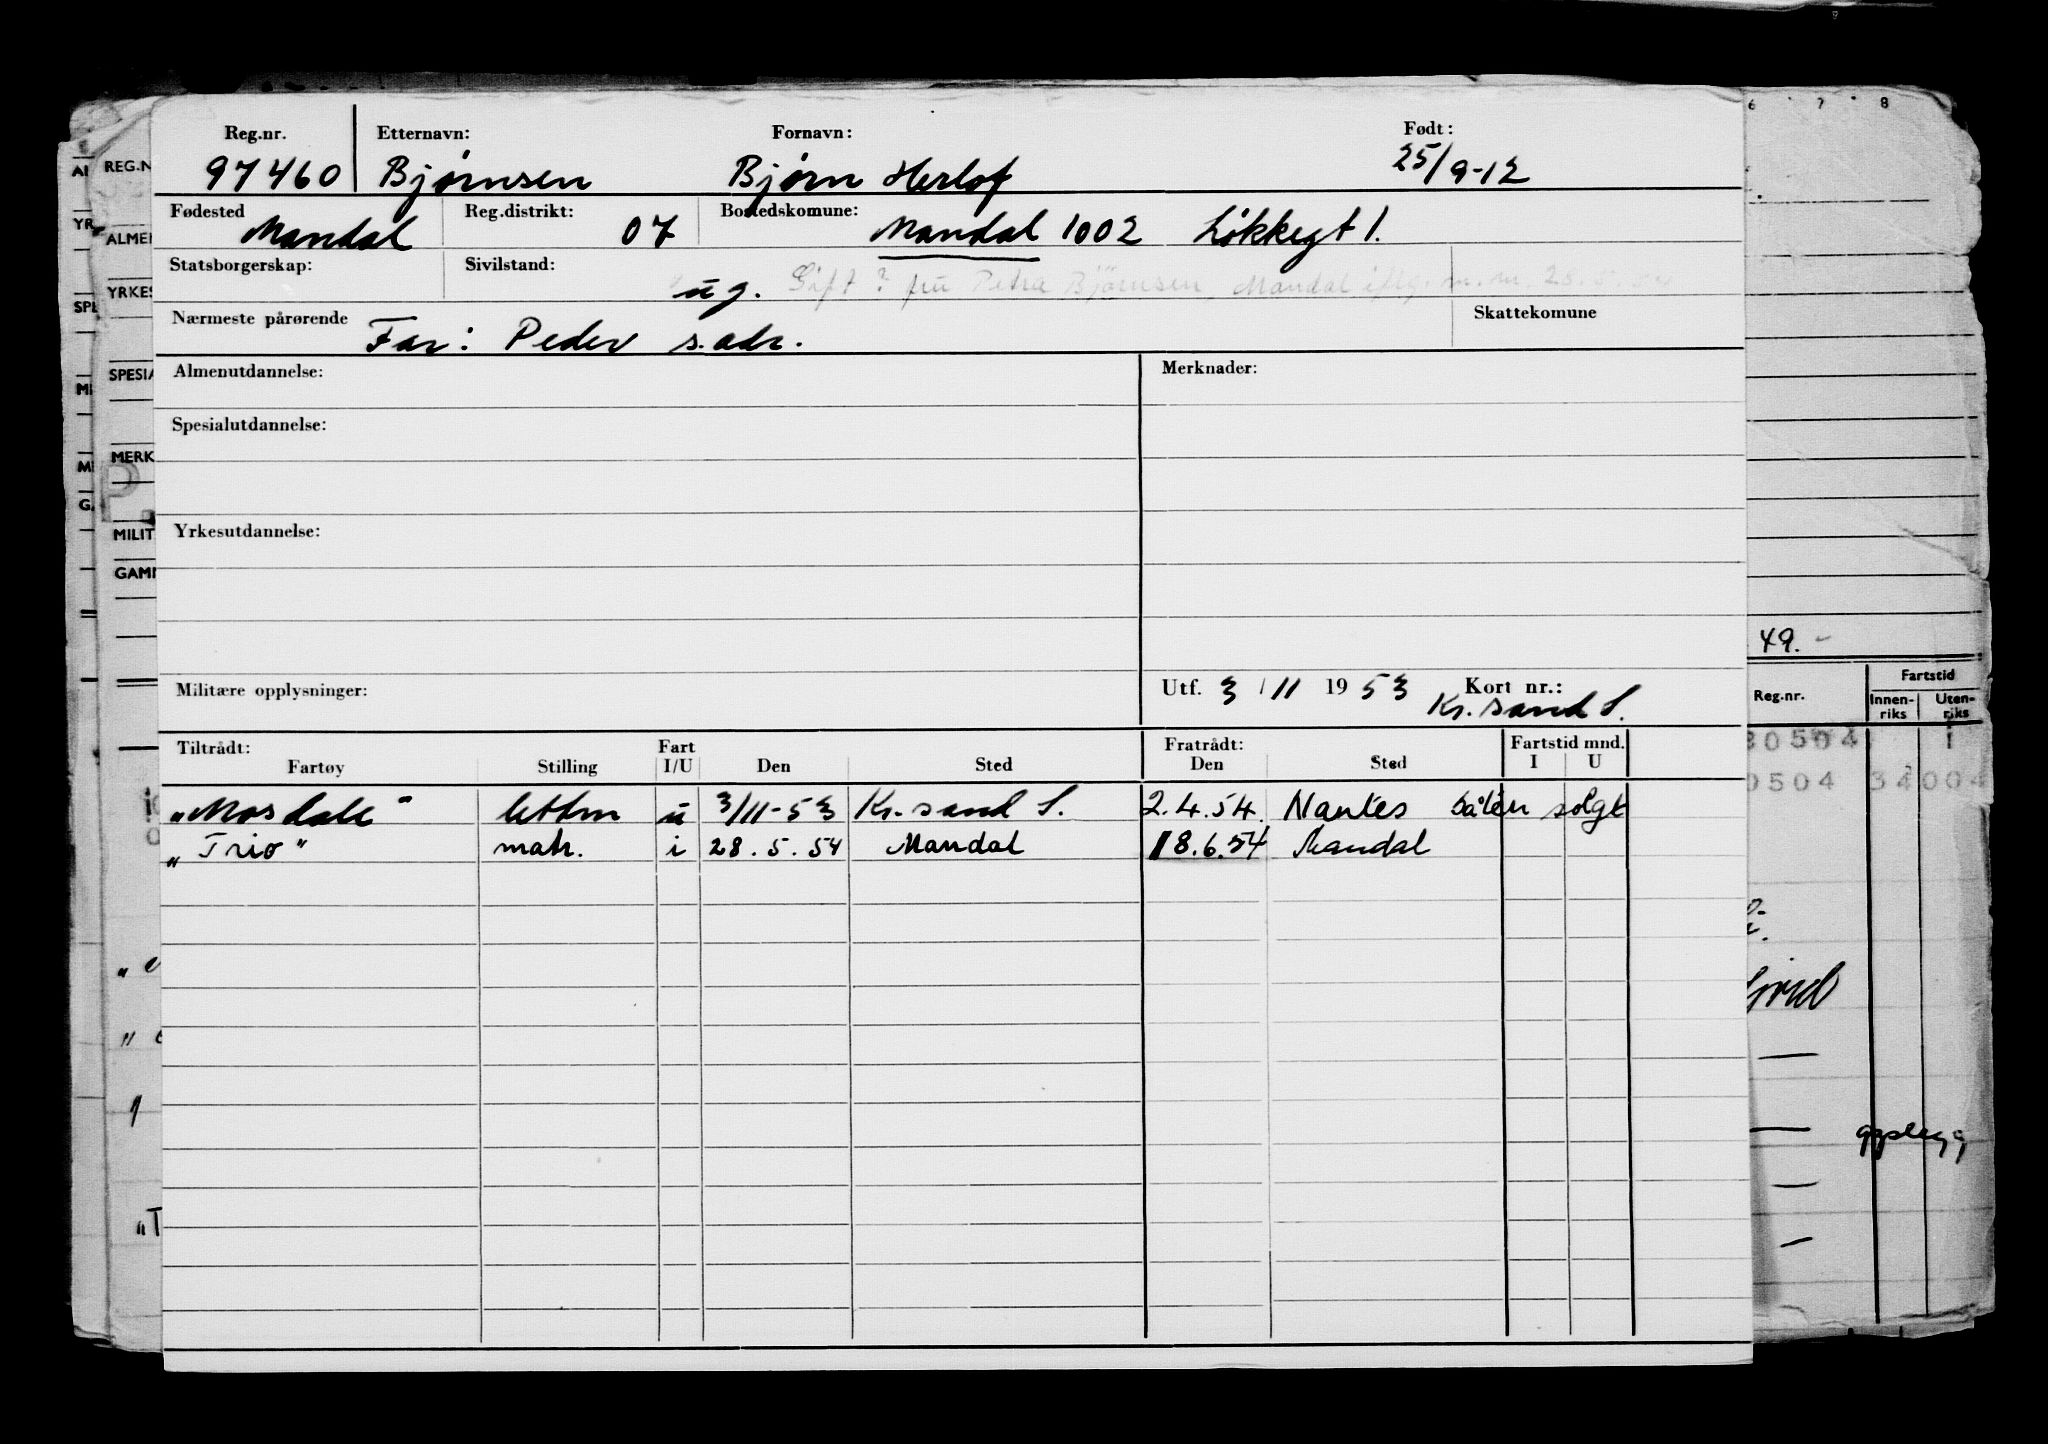 6 7 8
Reg.nr. Etternavn: Fornavn: Født:
97460 Bjørnsen Bjørn Herlof 25/9-12
Fødested Reg.distrikt: Bostedskomune:
Mandal 07 Mandal 1002 Løkkegt 1.
Statsborgerskap: Sivilstand:
ug. Gift? fru Petra Bjørnsen, Mandal iflg. m.m. 28.5.54
Nærmeste pårørende Skattekomune
Far: Peder s.adr.
Almenutdannelse: Merknader:
Spesialutdannelse:
Yrkesutdannelse:
Militære opplysninger: Utf. 3/11 1953 Kort nr.:
Kr. sand S.
Tiltrådt: Fart Fratrådt: Fartstid mnd.
Fartøy Stilling I/U Den Sted Den Sted I U
"Mosdale" lettm u 3/11-53 Kr. sand S. 2.4.54. Nantes båten solgt
"Trio" matr. i 28.5.54 Mandal 18.6.54 Mandal
REG.N
ALMEN
YRKES
SPESIA
MERK
P.
MILIT
GAMM
49.-
Reg.nr. Fartstid
Innen-riks Uten-riks
30504 1
0504 34 004